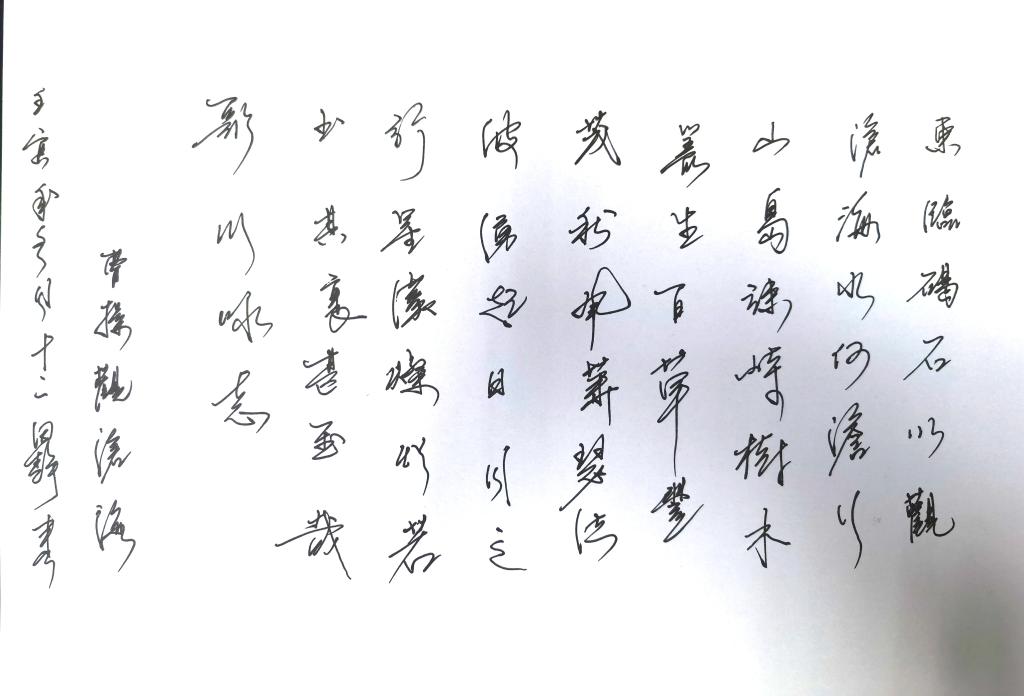 東臨碣石以觀
滄海水何澹〻
山島竦峙樹木
叢生百草豐
茂秋風蕭瑟洪
波湧起日月之
行星漢燦爛若
出其裏甚至哉
歌以咏志
曹操觀滄海
壬寅月十二書